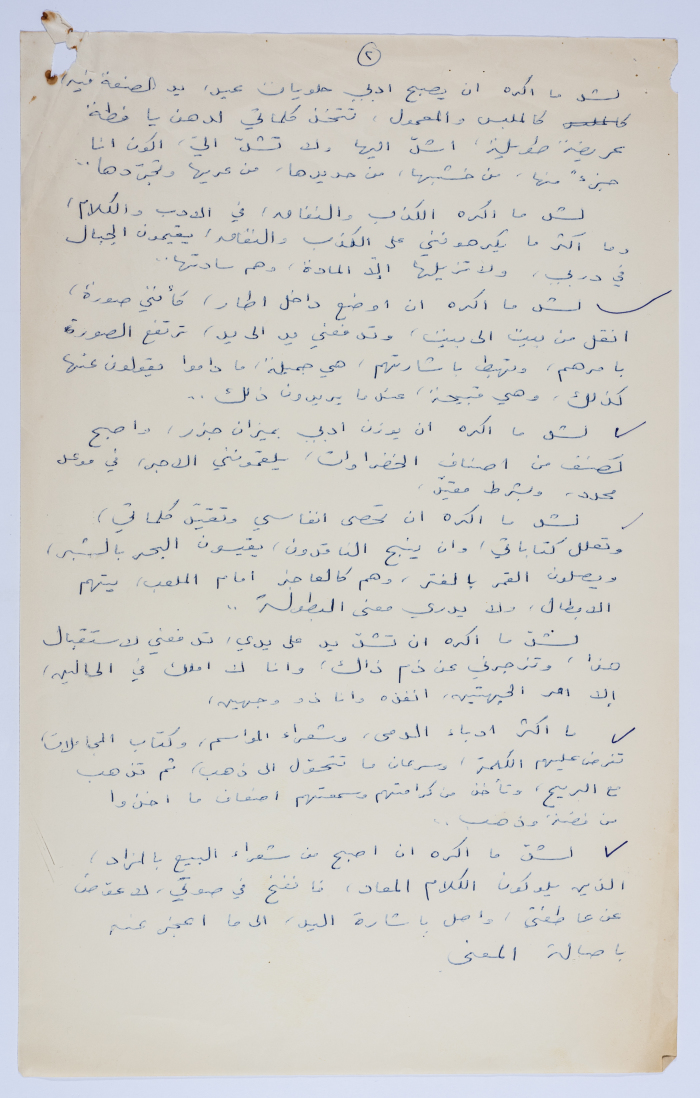 ٢
لشد ما اكره ان يصبح ادبي حلويات عيد، يد الصنعة فيه،
كالملبس كالملبس والمعمول، تتخذ كلماتي لدهن يافطة
عريضة طويلة، اشدّ اليها ولا تشدّ اليّ، اكون انا
جزءً منها، من خشبها، من حديدها، من عريها وتجرّدها..
لشد ما اكره الكذب والنفاق، في الادب والكلام،
وما اكثر ما يكرهونني على الكذب والنفاق، يقيمون الجبال
في دربي، ولا تزيلها إلّا المادة، وهم سادتها..
لشد ما اكره ان اوضع داخل اطار، كأنني صورة،
انقل من بيت الى بيت، وتدفعني يد الى يد، ترتفع الصورة
بامرهم، وتهبط باشارتهم، هي جميلة، ما داموا يقولون عنها
كذلك، وهي قبيحة، عندما يريدون ذلك..
لشد ما اكره ان يوزن ادبي بميزان جزر، واصبح
كصنف من اصناف الخضراوات، يلقمونني الاجر، في موعد
محدد، وبشرط مقيّد،
لشد ما اكره ان تحصى انفاسي وتقيّد كلماتي،
وتعلل كتاباتي، وان ينبح الناقدون، يقيسون البحر بالشبر،
ويصلون القمر بالفتر، وهم كالعاجز امام الملعب، يتهم
الابطال، ولا يدري معنى البطولة..
لشدّ ما اكره ان تشدّ يد على يدي، تدفعني لاستقبال
هذا، وتزجرني عن ذم ذاك، وانا لا املك في الحالين،
إلا امر الجهتين، انفذه وانا ذو وجهين،
ما اكثر ادباء الدمى، وشعراء المواسم، وكتاب المجاملات،
تفرض عليهم الكلمة، وسرعان ما تتحوّل الى ذهب، ثم تذهب
مع الريح، وتأخذ من كرامتهم وسمعتهم اضعاف ما اخذوا
من فضة وذهب..
لشدّ ما اكره ان اصبح من شعراء البيع بالمزاد،
الذين يلوكون الكلام المعاد، فانفخ في صوتي، لاعوّض
عن عاطفتي، واصل باشارة اليد، الى ما اعجز عنه
باصالة المعنى